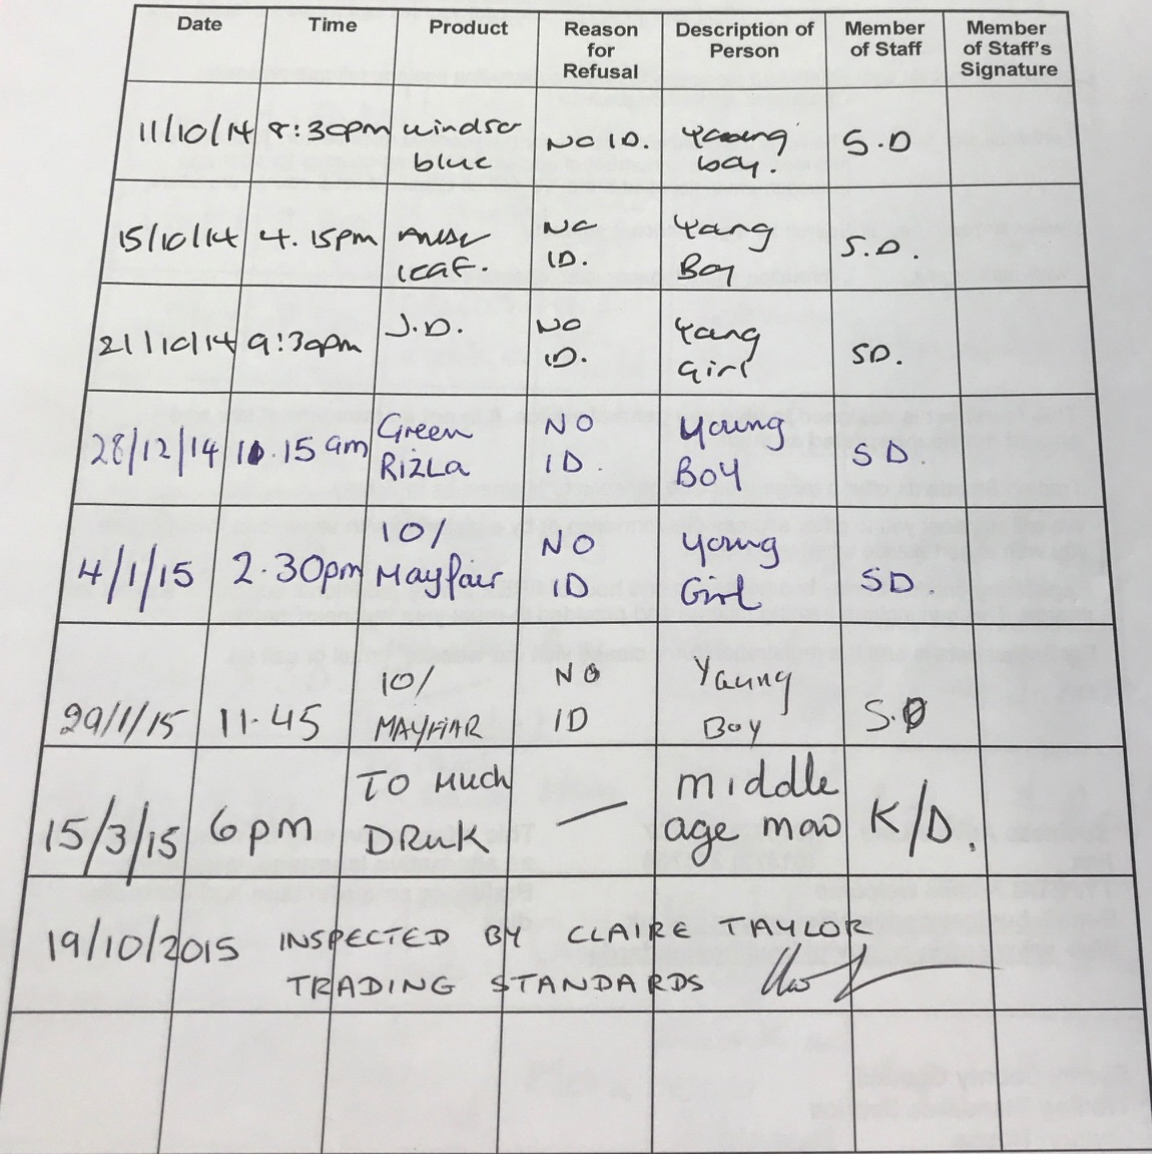 Date Time Product Reason for Refusal Description of Person Member of Staff Member of Staff's Signature
11/10/14 8:30pm windsor blue No ID. Young boy. S.D
15/10/14 4.15pm leaf. No ID. Yang Boy S.D.
21/10/14 9:30pm J.D. No ID. Yang Girl SD.
28/12/14 10.15 am Green RizLa NO ID. Young BOY SD.
4/1/15 2.30pm 10/ Mayfair NO ID Young Girl SD.
29/1/15 11.45 10/ MAYFIAR NO ID Yaung Boy S.D
15/3/15 6pm TO Much DRunk — middle age man K/D.
19/10/2015 INSPECTED BY CLAIRE TAYLOR
TRADING STANDARDS